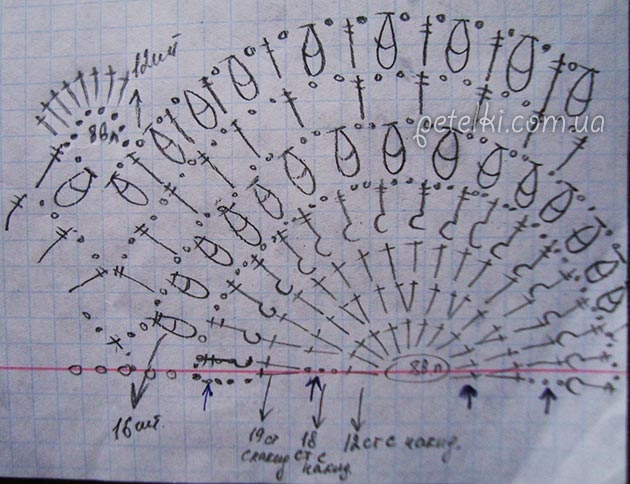 12шт
8Вп
petelki.com.ua
8Вп
16шт.
19ст
с накид
18
ст с
накид
12ст с накид.